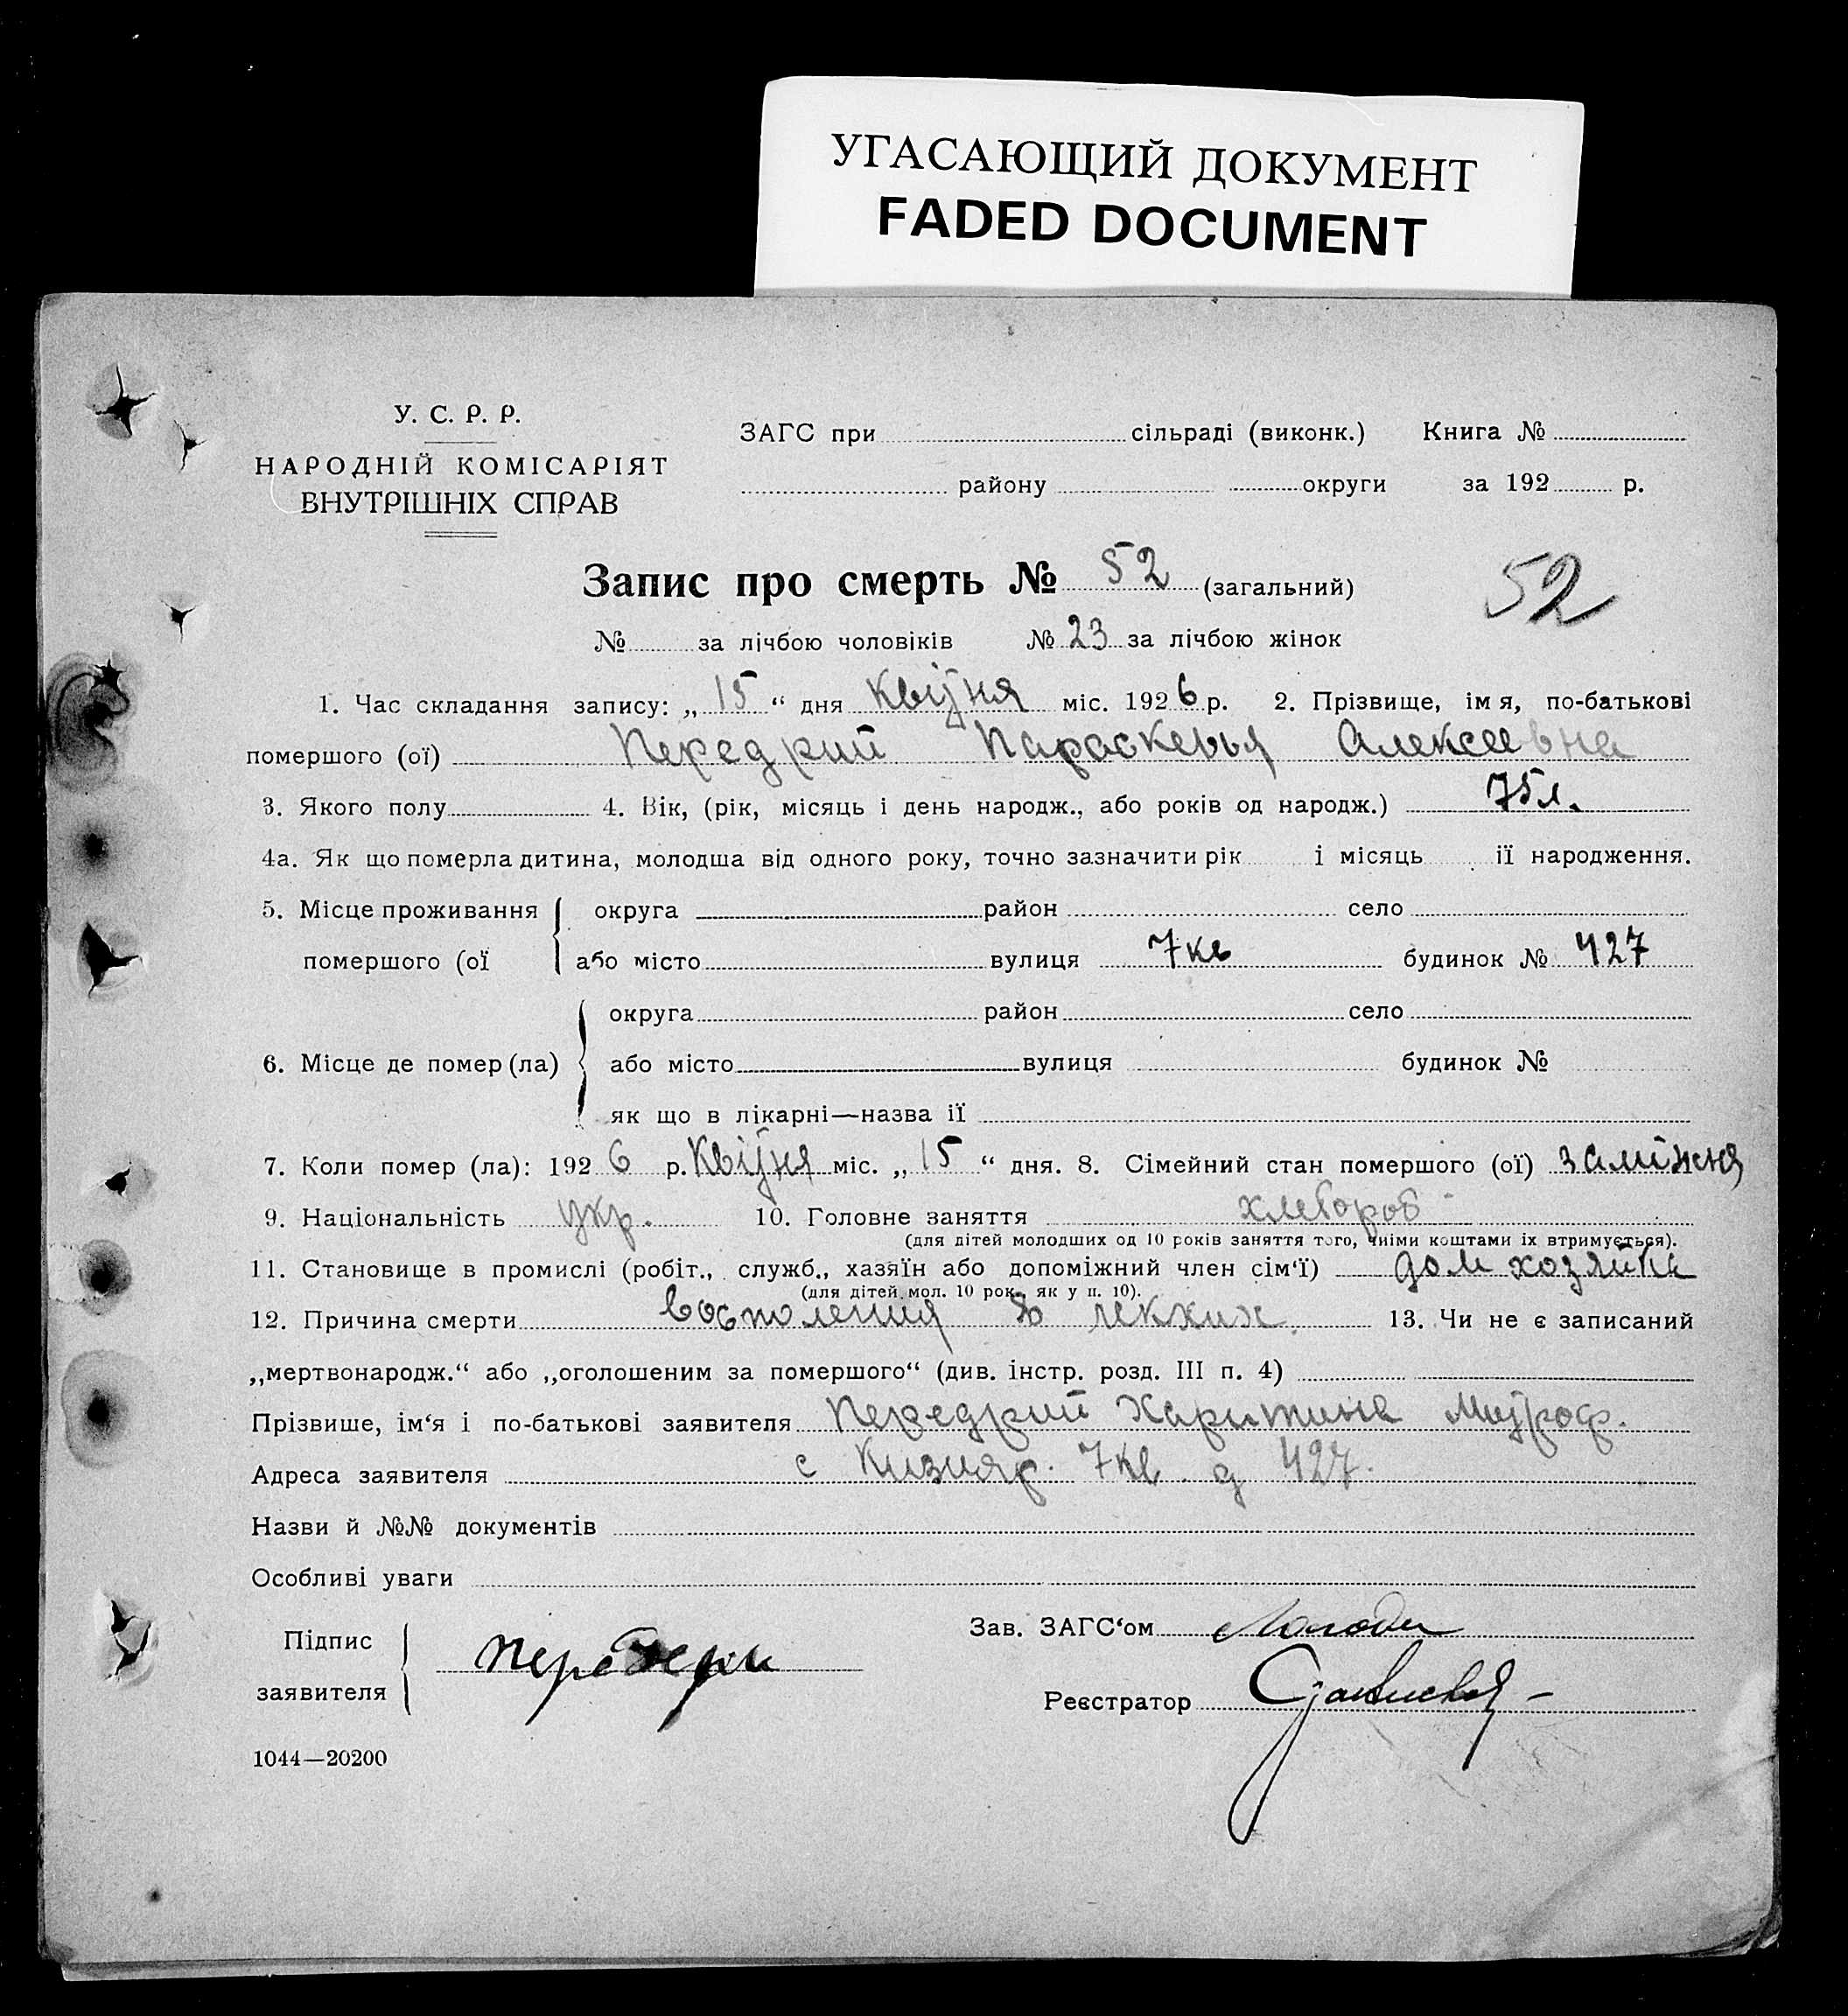 УГАСАЮЩИЙ ДОКУМЕНТ
FADED DOCUMENT
У. С. Р. Р.
НАРОДНІЙ КОМІСАРІЯТ
ВНУТРІШНІХ СПРАВ
ЗАГС при сільраді (виконк.) Книга №
району округи за 192 р.
Запис про смерть № 52 (загальний)
52
№ за лічбою чоловіків № 23 за лічбою жінок
1. Час складання запису: „ 15 “ дня Квітня міс. 1926 р. 2. Прізвище, імя, по-батькові
помершого (ої) Передрий Параскевья Алексеевна
3. Якого полу 4. Вік, (рік, місяць і день народж., або років од народж.) 75 л.
4а. Як що померла дитина, молодша від одного року, точно зазначити рік і місяць її народження.
5. Місце проживання округа район село
помершого (ої або місто вулиця 7 кв будинок № 427
округа район село
6. Місце де помер (ла) або місто вулиця будинок №
як що в лікарні—назва її
7. Коли помер (ла): 1926 р. Квітня міс. „ 15 “ дня. 8. Сімейний стан помершого (ої) заміжня
9. Національність укр. 10. Головне заняття хлебороб
(для дітей молодших од 10 років заняття того, чиїми коштами їх втримується).
11. Становище в промислі (робіт., служб., хазяїн або допоміжний член сім‘ї) дом хозяйка
(для дітей мол. 10 рок., як у п. 10).
12. Причина смерти восполения в лекких. 13. Чи не є записаний
„мертвонародж.“ або „оголошеним за помершого“ (див. інстр. розд. III п. 4)
Прізвише, ім‘я і по-батькові заявителя Передрий Харитина Митроф.
Адреса заявителя с Кизияр. 7 кв. д 427.
Назви й №№ документів
Особливі уваги
Підпис
заявителя
Зав. ЗАГС‘ом
Реєстратор
1044—20200